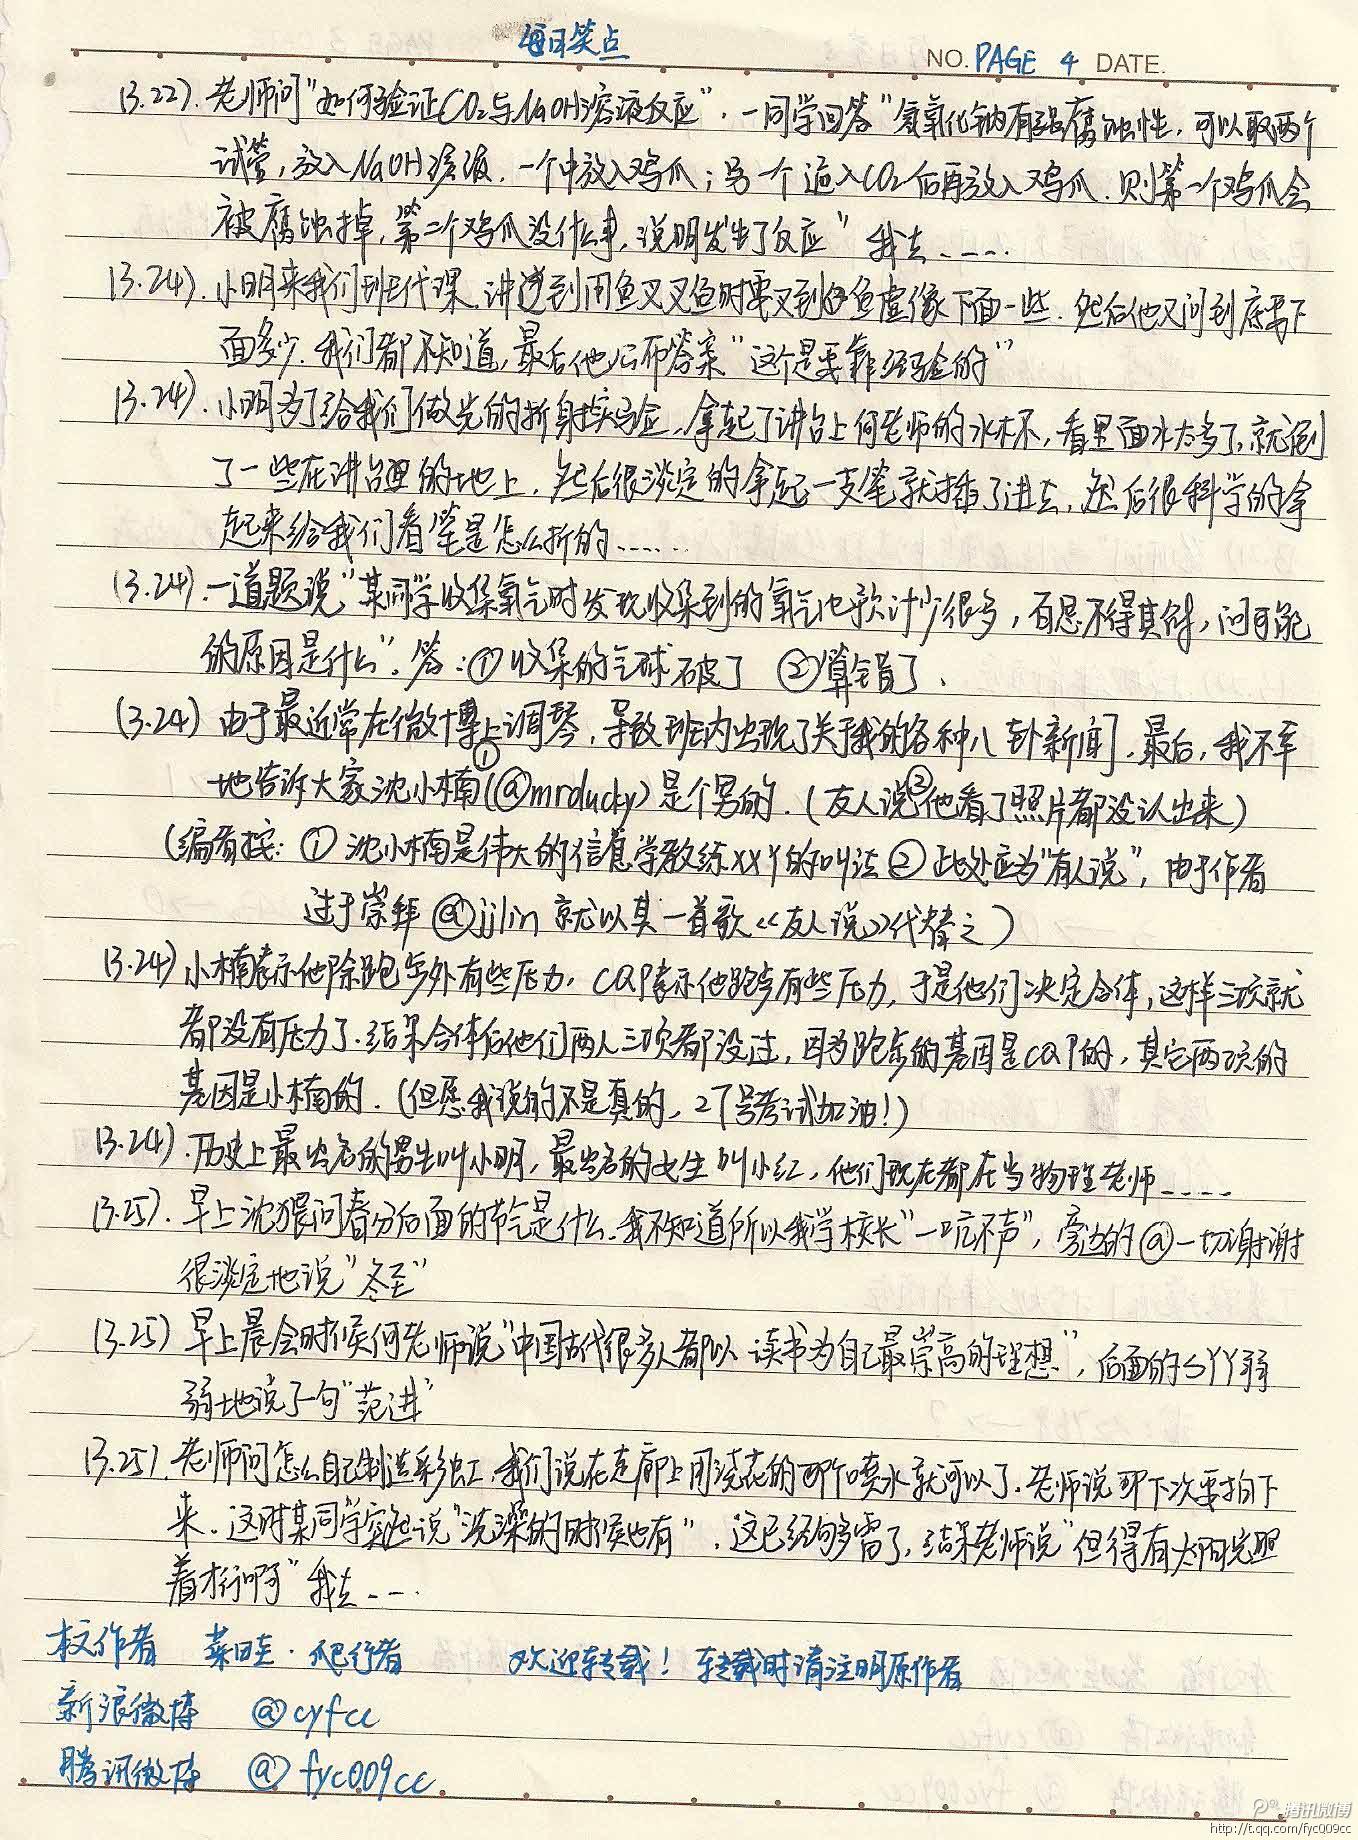 每日笑点
NO. PAGE 4 DATE.
(3.22). 老师问"如何验证CO2与NaOH溶液反应", 一同学回答"氢氧化钠有强腐蚀性, 可以取两个
试管, 放入NaOH溶液, 一个中放入鸡爪; 另一个通入CO2后再放入鸡爪. 则第一个鸡爪会
被腐蚀掉, 第二个鸡爪没什么事, 说明发生了反应" 我去.....
(3.24). 小明来我们班代课, 讲述到用鱼叉叉鱼时要叉到鱼虚像下面一些. 然后他又问到底要下
面多少. 我们都不知道, 最后他公布答案"这个是要靠经验的"
(3.24). 小明为了给我们做光的折射实验, 拿起了讲台上何老师的水杯, 看里面水太多了, 就倒
了一些在讲台里的地上, 然后很淡定的拿起一支笔就插了进去, 然后很科学的拿
起来给我们看笔是怎么折的......
(3.24). 一道题说"某同学收集氧气时发现收集到的氧气比预计少很多, 百思不得其解, 问可能
的原因是什么". 答: ①收集的气球破了 ②算错了.
(3.24) 由于最近常在微博上调琴, 导致班内出现了关于我的各种八卦新闻, 最后, 我不幸
地告诉大家沈小楠①(@mrducky)是个男的. (友人说②他看了照片都没认出来)
(编者按: ① 沈小楠是伟大的信息学教练XXY的叫法 ② 此处应为"有人说", 由于作者
过于崇拜 @jjlin 就以其一首歌《友人说》代替之)
(3.24) 小楠表示他除跑步外有些压力, CQP表示他跑步有些压力, 于是他们决定合体, 这样三项就
都没有压力了. 结果合体后他们两人三项都没过, 因为跑步的基因是CQP的, 其它两项的
基因是小楠的. (但愿我说的不是真的, 27号考试加油!)
(3.24). 历史上最出名的男生叫小明, 最出名的女生叫小红, 他们现在都在当物理老师.....
(3.25). 早上沈猥问春分后面的节气是什么. 我不知道所以我学校长"一吭不声", 旁边的@一切谢谢
很淡定地说"冬至"
(3.25) 早上晨会时候何老师说"中国古代很多人都以读书为自己最崇高的理想", 后面的SYY弱
弱地说了一句"范进"
(3.25). 老师问怎么自己制造彩虹, 我们说在走廊上用浇花的那个喷水就可以了. 老师说那下次要拍下
来. 这时某同学突然说"洗澡的时候也有", 这已经够雷了, 结果老师说"但得有太阳光照
着才行啊" 我去....
本文作者 菜田圭·爬行者 欢迎转载! 转载时请注明原作者
新浪微博 @cyfcc
腾讯微博 @fyc009cc
腾讯微博
http://t.qq.com/fyc009cc